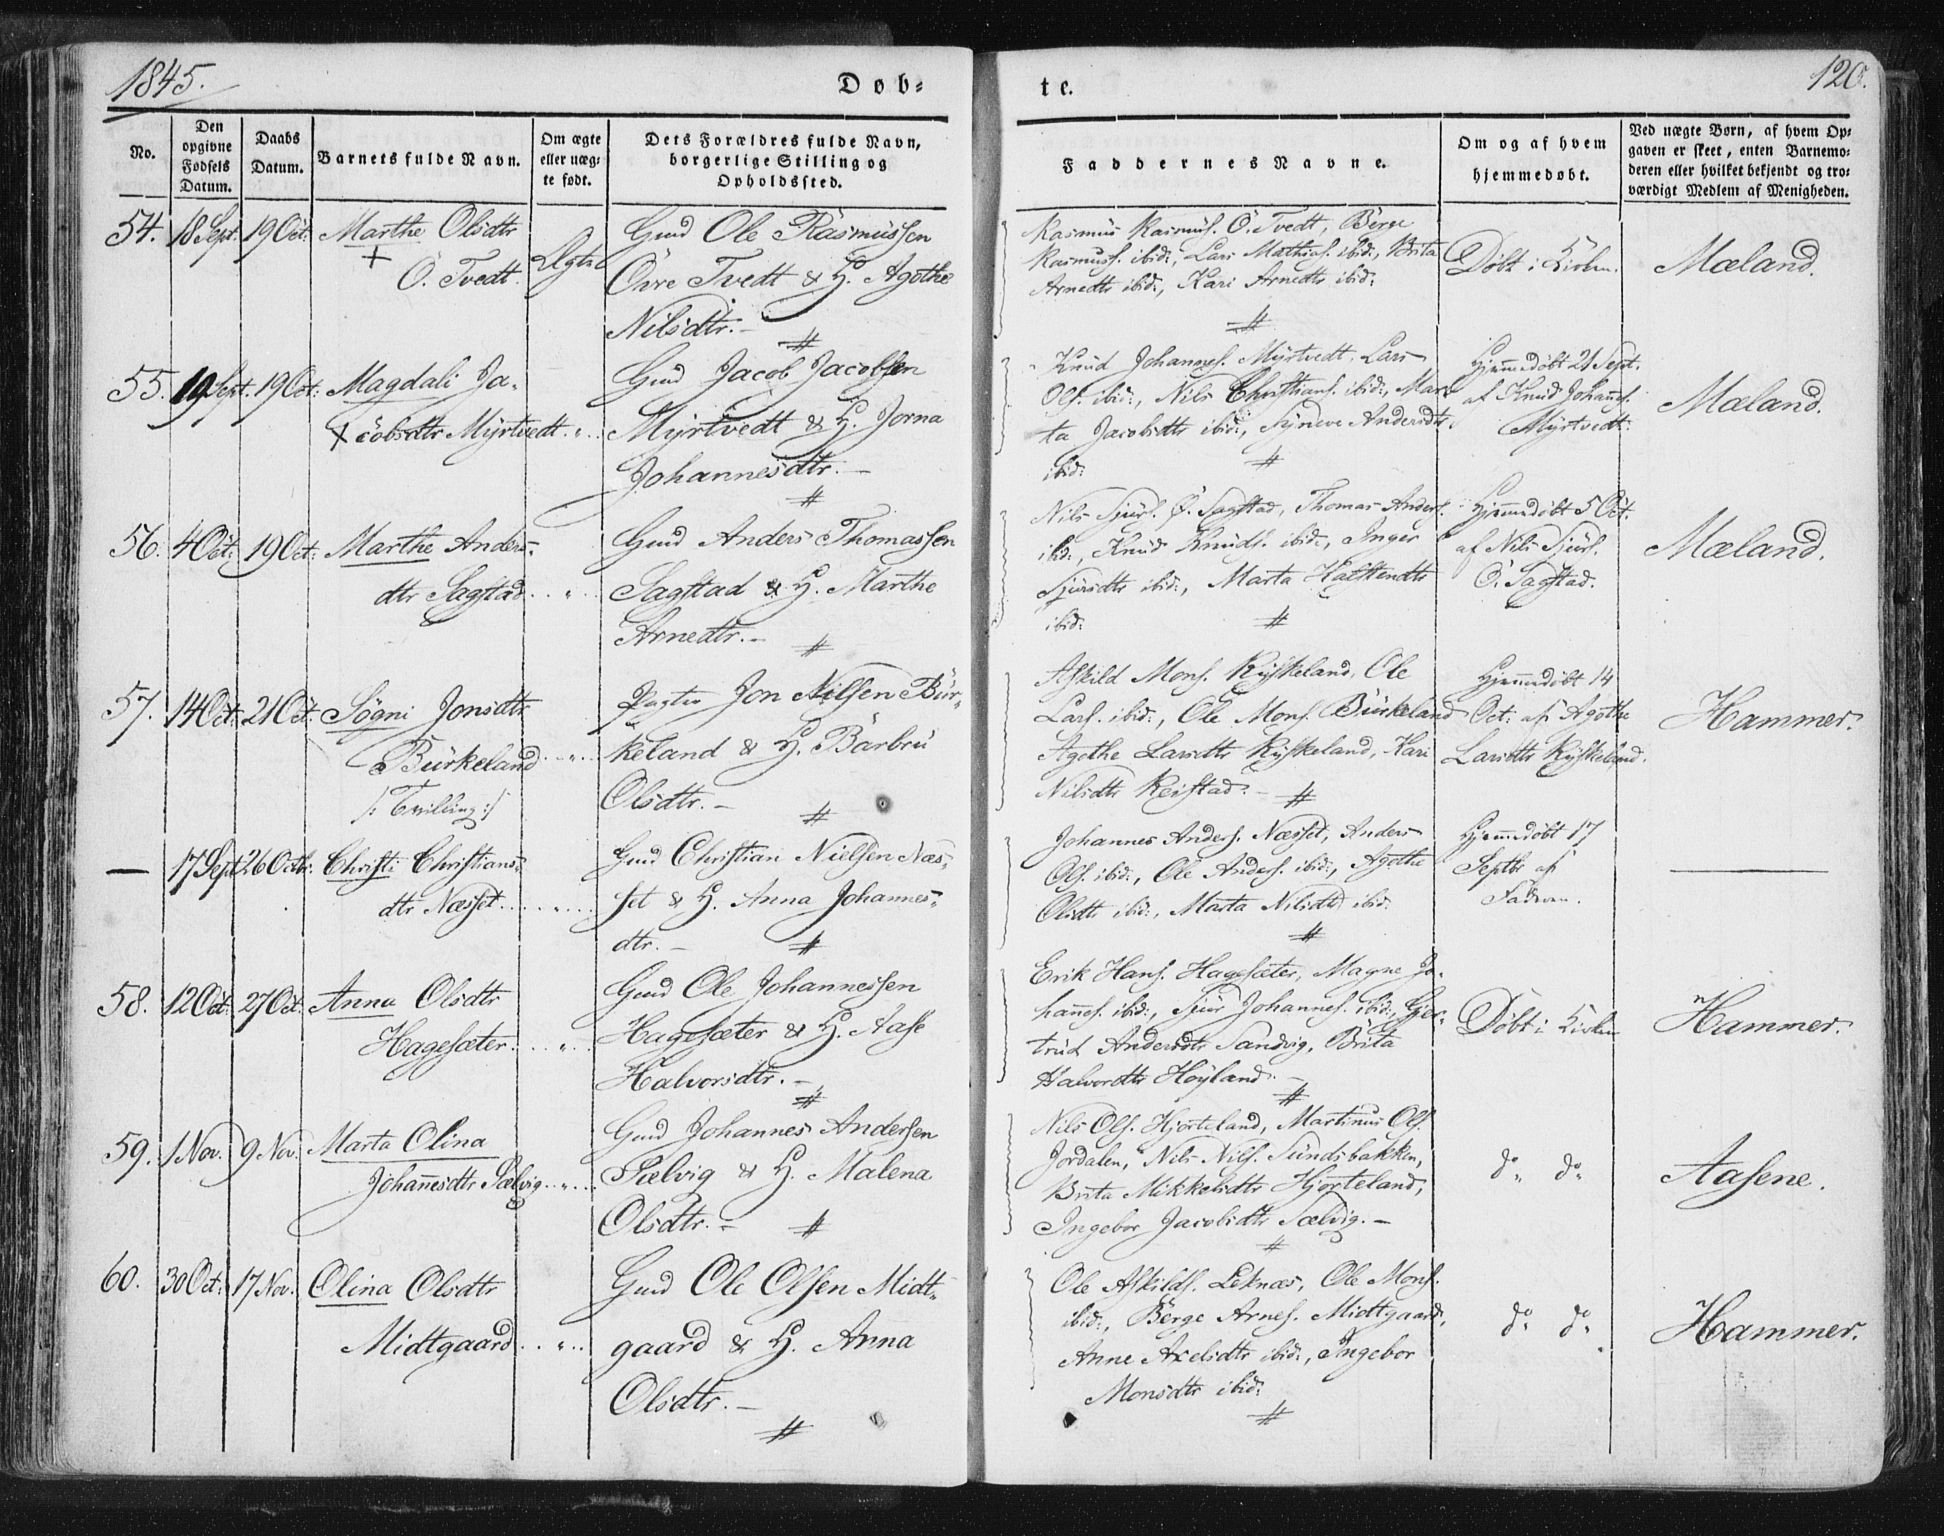 1845.
Døb=
te.
120.
No.
Den opgivne Fødsels Datum.
Daabs Datum.
Barnets fulde Navn.
Om ægte eller uæg= te født.
Dets Forældres fulde Navn, borgerlige Stilling og Opholdssted.
Faddernes Navne.
Om og af hvem hjemmedøbt.
Ved uægte Børn, af hvem Op= gaven er skeet, enten Barnemo= deren eller hvilket bekjendt og tro= værdigt Medlem af Menigheden.
54. 18 Sept. 19 Oct: Marthe Olsdtr
Ö. Tvedt.
Ægte
Gmd Ole Rasmussen
Övre Tvedt & H. Agothe
Nilsdtr. -
Rasmus Rasmus. Ö. Tvedt, Börge
Rasmuss. ibid:, Lars Mathias. ibid:, Brita
Arnedtr ibid:, Kari Arnedtr ibid:
Döbt i Kirken.
Mæland.
55. 19 Sept. 19 Oct: Magdali Ja-
cobsdtr Myrtvedt. „
Gmd Jacob Jacobsen
Myrtvedt & H. Jorna
Johannesdtr. -
Knud Johannes. Myrtvedt. Lars
Ols. ibid:, Nils Christians. ibid:, Mar-
ta Jacobsdtr ibid:, Synneve Andersdtr
ibid:
Hjemmedöbt 21 Sept.
af Knud Johannes.
Myrtvedt:
Mæland.
56. 4 Oct: 19 Oct: Marthe Anders-
dtr Sagstad. „
Gmd Anders Thomassen
Sagstad & H. Marthe
Arnedtr. -
Nils Sjurs. Ö. Sagstad, Thomas Anders.
ibd:, Knud Knuds. ibid:, Inger
Sjursdtr ibid:, Marta Halstendtr
ibid:
Hjemmedöbt 5 Oct.
af Nils Sjurs.
Ö. Sagstad.
Mæland.
57. 14 Oct: 21 Oct: Sögni Jonsdtr
Burkeland. „
/: Tvilling :/
Pagter Jon Nilsen Bur-
keland & H. Barbru
Olsdtr. -
Askild Mons. Ryskeland, Ole
Lars. ibid:, Ole Mons. Burkeland
Agothe Larsdtr Ryskeland, Kari
Nilsdtr Reistad. -
Hjemmedöbt 14
Oct: af Agothe
Larsdtr Ryskeland.
Hammer.
— 17 Sept 26 Octb: Christi Christians-
dtr Næsset. „
Gmd Christian Nielsen Næs-
set & H. Anna Johannes-
dtr. -
Johannes Anders. Næsset, Anders
Ols. ibid:, Ole Anders. ibid:, Agothe
Olsdtr ibid:, Marta Nilsdtr ibid:
Hjemmedöbt 17
Septbr af
Faderen.
—
58. 12 Oct: 27 Oct: Anna Olsdtr
Hagesæter. „
Gmd Ole Johannessen
Hagesæter & H. Aase
Halvorsdtr. -
Erik Hans. Hagesæter, Magne Jo-
hannes. ibid:, Sjur Johannes. ibid:, Gjer-
trud Andersdtr Sandvig, Brita
Halvordtr Höyland. -
Döbt i Kirken
Hammer.
59. 1 Nov. 9 Nov. Marta Olina
Johannesdtr Sælvig. „
Gmd Johannes Andersen
Sælvig & H. Malena
Olsdtr. -
Nils Ols. Hjorteland, Martinus Ols.
Jordalen, Nils Nils. Sundsbakken,
Brita Mikkelsdtr Hjorteland,
Ingebor Jacobsdtr Sælvig. -
do do
Aasene.
60. 30 Oct: 17 Nov. Olina Olsdtr
Midtgaard. „
Gmd Ole Olsen Midt-
gaard & H. Anna
Olsdtr. -
Ole Askilds. Leknæs, Ole Mons.
ibid:, Börge Arnes. Midtgaard,
Anne Axelsdtr ibid:, Ingebor
Monsdtr ibid:
do do
Hammer.